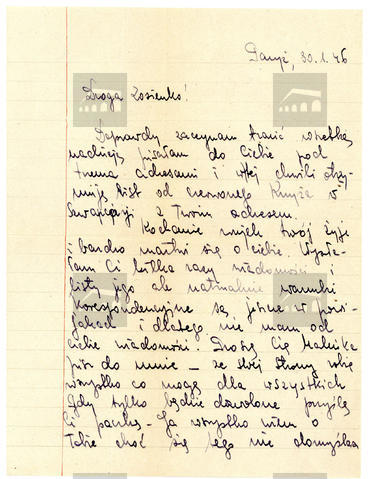 Paryż, 30.1.46
Droga Zosieńko!
Doprawdy zaczynam tracić wszelką
nadzieję pisałam do Ciebie pod
trema adresami i w tej chwili otrzy-
muję list od czerwonego Krzyża w
z Twoim adresem.
Kochanie wujek twój żyje
i bardzo martwi się o ciebie. Wysła-
łam Ci kilka razy wiadomości i
listy jego ale naturalnie warunki
korespondencyjne są jeszcze w
i dlatego nie mam od
ciebie wiadomości. Proszę Cię Maleńka
pisz do mnie – ze swej strony robię
wszystko co mogę dla wszystkich
Gdy tylko będzie dozwolone prześlę
Ci paczkę – Ja wszystko wiem o
Tobie choć się tego nie domyślasz